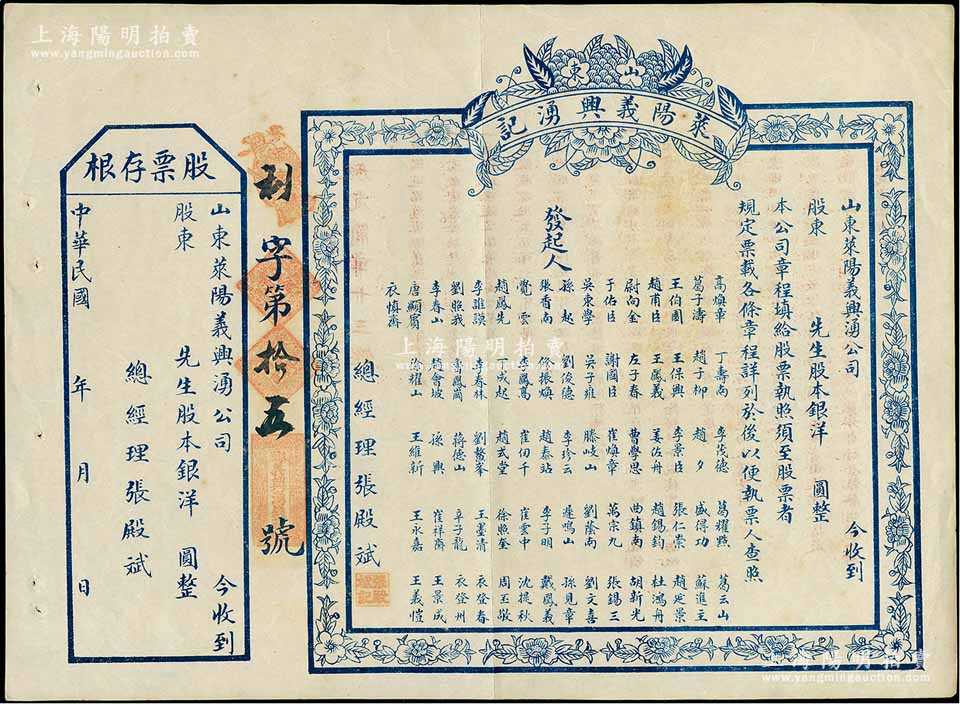 上海陽明拍賣
www.yangmingauction.com
山東
萊陽義興湧記
山東萊陽義興湧公司 今收到
股東 先生股本銀洋 圓整
本公司章程填給股票執照須至股票者
規定票載各條章程詳列於後以便執票人查照
發起人
高煥章 丁壽南 李茂德 葛耀照 葛云山
葛子濤 趙子柳 趙 夕 盛得功 蘇進主
王伯圃 王保興 李景臣 張仁崇 趙廷景
趙甫臣 王鳳義 姜佐舟 趙錫鈞 杜鴻舟
尉向金 左子春 曹學思 曲鎮南 胡新光
于佑臣 謝國臣 崔煥章 萬宗九 張錫三
吳東學 吳子雍 滕岐山 劉蔭南 劉文喜
孫 起 劉俊德 李珍云 遲鳴山 孫見章
張香南 張振煥 趙泰站 李子明 戴鳳義
覺 雲 李鳳嵩 崔伯千 崔雲中 沈提秋
趙鳳先 成起 趙式堂 徐照奎 周玉敬
李誰謨 李春林 劉鰲峯 王墨清 衣登春
劉照我 鳳崗 蔣德山 辛子龍 衣登州
李春山 趙會坡 孫 興 崔祥齋 王景成
唐顯賓 淦耀山 王維新 王永嘉 王義愷
衣慎齋
總經理張殿斌
張殿斌記
利字第拾五號
股票存根
山東萊陽義興湧公司 今收到
股東 先生股本銀洋 圓整
總經理張殿斌
中華民國 年 月 日
上海陽明拍賣
www.yangmingauction.com
上海陽明拍賣
www.yangmingauction.com